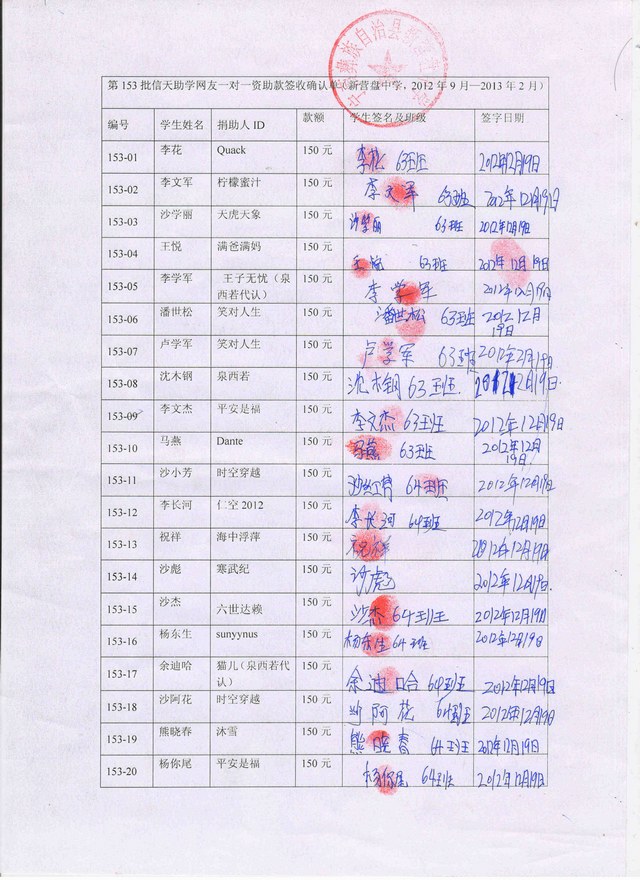 彝族自治县
第 153 批信天助学网友一对一资助款签收确认单（新营盘中学，2012 年 9 月—2013 年 2 月）
编号 学生姓名 捐助人 ID 款额 学生签名及班级 签字日期
153-01 李花 Quack 150 元 李花 63班 2012年12月19日
153-02 李文军 柠檬蜜汁 150 元 李文军 63班 2012年12月19日
153-03 沙学丽 天虎天象 150 元 沙学丽 63班 2012年12月19日
153-04 王悦 满爸满妈 150 元 王悦 63班 2012年12月19日
153-05 李学军 王子无忧（泉 150 元 李学军 2012年12月19日
西若代认）
153-06 潘世松 笑对人生 150 元 潘世松 63班 2012年12月
19日
153-07 卢学军 笑对人生 150 元 卢学军 63班 2012年12月19日
153-08 沈木钢 泉西若 150 元 沈木钢 63班 2012年12月19日.
153-09 李文杰 平安是福 150 元 李文杰 63班 2012年12月19日
153-10 马燕 Dante 150 元 马燕 63班 2012年12月
19日
153-11 沙小芳 时空穿越 150 元 64班 2012年12月19日
153-12 李长河 仁空 2012 150 元 李长河 64班 2012年12月19日
153-13 祝祥 海中浮萍 150 元 祝祥 2012年12月19日
153-14 沙彪 寒武纪 150 元 沙彪 2012年12月19日.
153-15 沙杰 六世达赖 150 元 沙杰 64班 2012年12月19日
153-16 杨东生 sunyynus 150 元 杨东生 64班 2012年12月19日
153-17 余迪哈 猫儿（泉西若代 150 元 余迪哈 64班 2012年12月19日
认）
153-18 沙阿花 时空穿越 150 元 沙阿花 64班 2012年12月19日
153-19 熊晓春 沐雪 150 元 熊晓春 64班 2012年12月19日
153-20 杨你尾 平安是福 150 元 杨你尾 64班 2012年12月19日